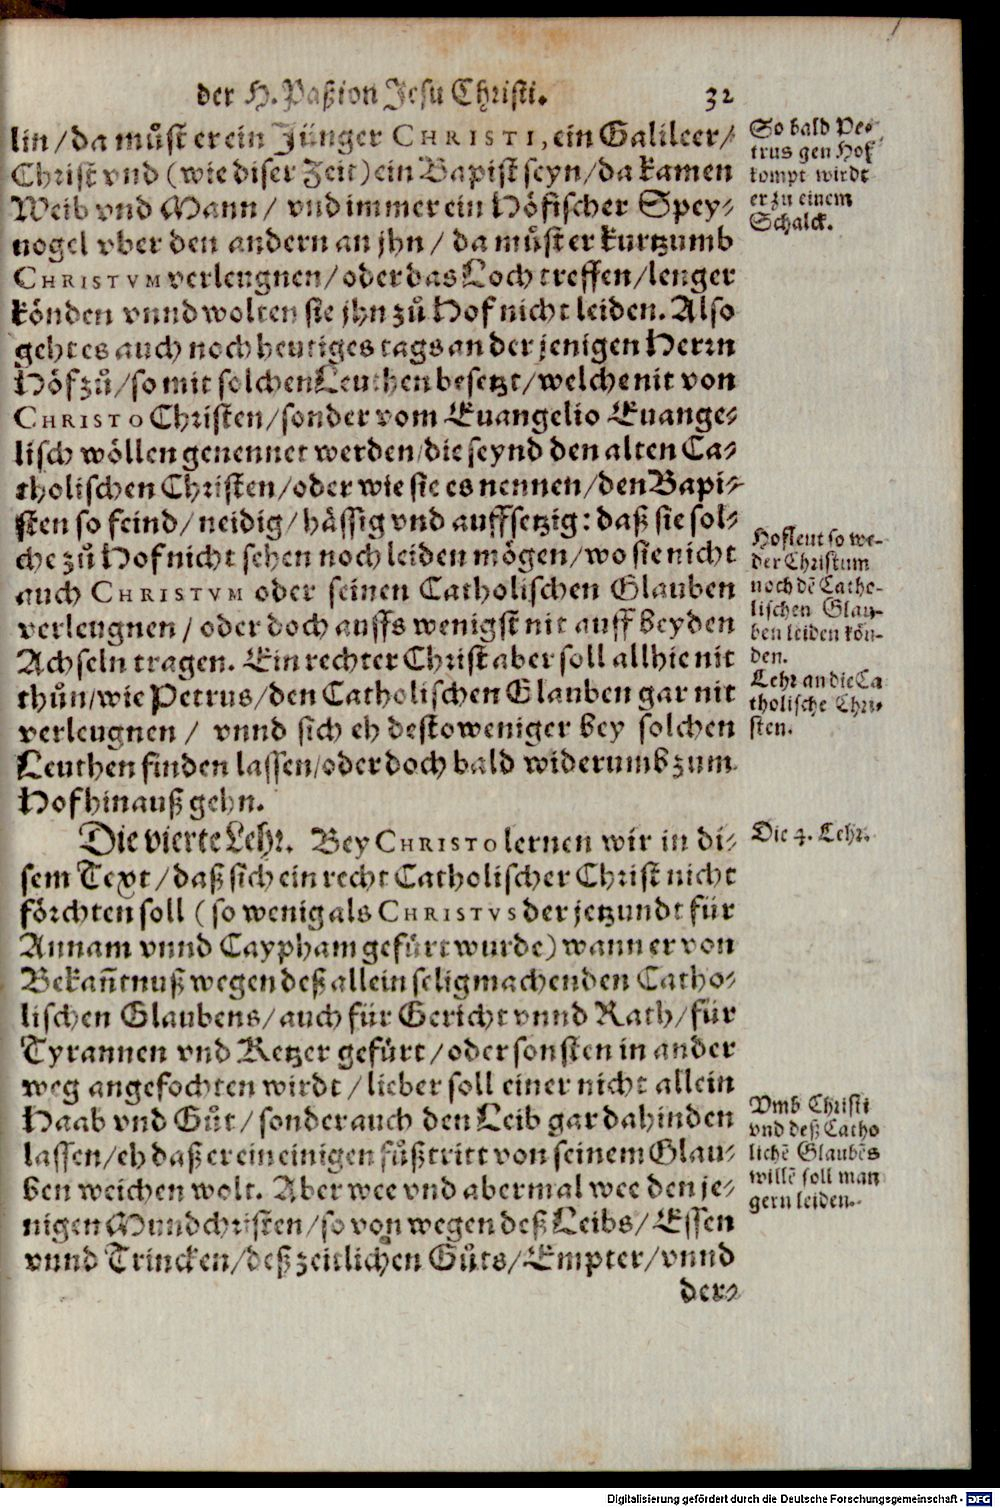 der H. Paßion Jesu Christi. 32
lin / da můst er ein Jünger CHRISTI, ein Galileer /
Christ vnd (wie diser Zeit) ein Bapist seyn / da kamen
Weib vnd Mann / vnd immer ein Höfischer Spey-
uogel vber den andern an jhn / da můst er kurtzumb
CHRISTVM verleugnen / oder das Loch treffen / lenger
könden vnnd wolten sie jhn zů Hof nicht leiden. Also
geht es auch noch heutiges tags an der jenigen Herrn
Höf zů / so mit solchen Leuthen besetzt / welche nit von
CHRISTO Christen / sonder vom Euangelio Euange-
lisch wöllen genennet werden / die seynd den alten Ca-
tholischen Christen / oder wie sie es nennen / den Bapi-
sten so feind / neidig / hässig vnd auffsetzig: daß sie sol-
che zů Hof nicht sehen noch leiden mögen / wo sie nicht
auch CHRISTVM oder seinen Catholischen Glauben
verleugnen / oder doch auffs wenigst nit auff beyden
Achseln tragen. Ein rechter Christ aber soll allhie nit
thůn / wie Petrus / den Catholischen Glauben gar nit
verleugnen / vnnd sich eh desto weniger bey solchen
Leuthen finden lassen / oder doch bald widerumb zum
Hof hinauß gehn.
Die vierte Lehr. Bey CHRISTO lernen wir in di-
sem Text / daß sich ein recht Catholischer Christ nicht
förchten soll (so wenig als CHRISTVS der jetzundt für
Annam vnnd Caypham gefürt wurde) wann er von
Bekañtnuß wegen deß allein seligmachenden Catho-
lischen Glaubens / auch für Gericht vnnd Rath / für
Tyrannen vnd Ketzer gefürt / oder sonsten in ander
weg angefochten wirdt / lieber soll einer nicht allein
Haab vnd Gůt / sonder auch den Leib gar dahinden
lassen / eh daß er ein einigen fůßtritt von seinem Glau-
ben weichen wolt. Aber wee vnd abermal wee den je-
nigen Mundchristen / so von wegen deß Leibs / Essen
vnnd Trincken / deß zeitlichen Gůts / Empter / vnnd
der-
So bald Pe-
trus gen Hof
kompt wirdt
er zu einem
Schalck.
Hofleut so we-
der Christum
noch dē Catho-
lischen Glau-
ben leiden kön-
den.
Lehr an die Ca
tholische Chri-
sten.
Die 4. Lehr.
Vmb Christi
vnd deß Catho
lichē Glaubēs
willē soll man
gern leiden.
Digitalisierung gefördert durch die Deutsche Forschungsgemeinschaft - DFG